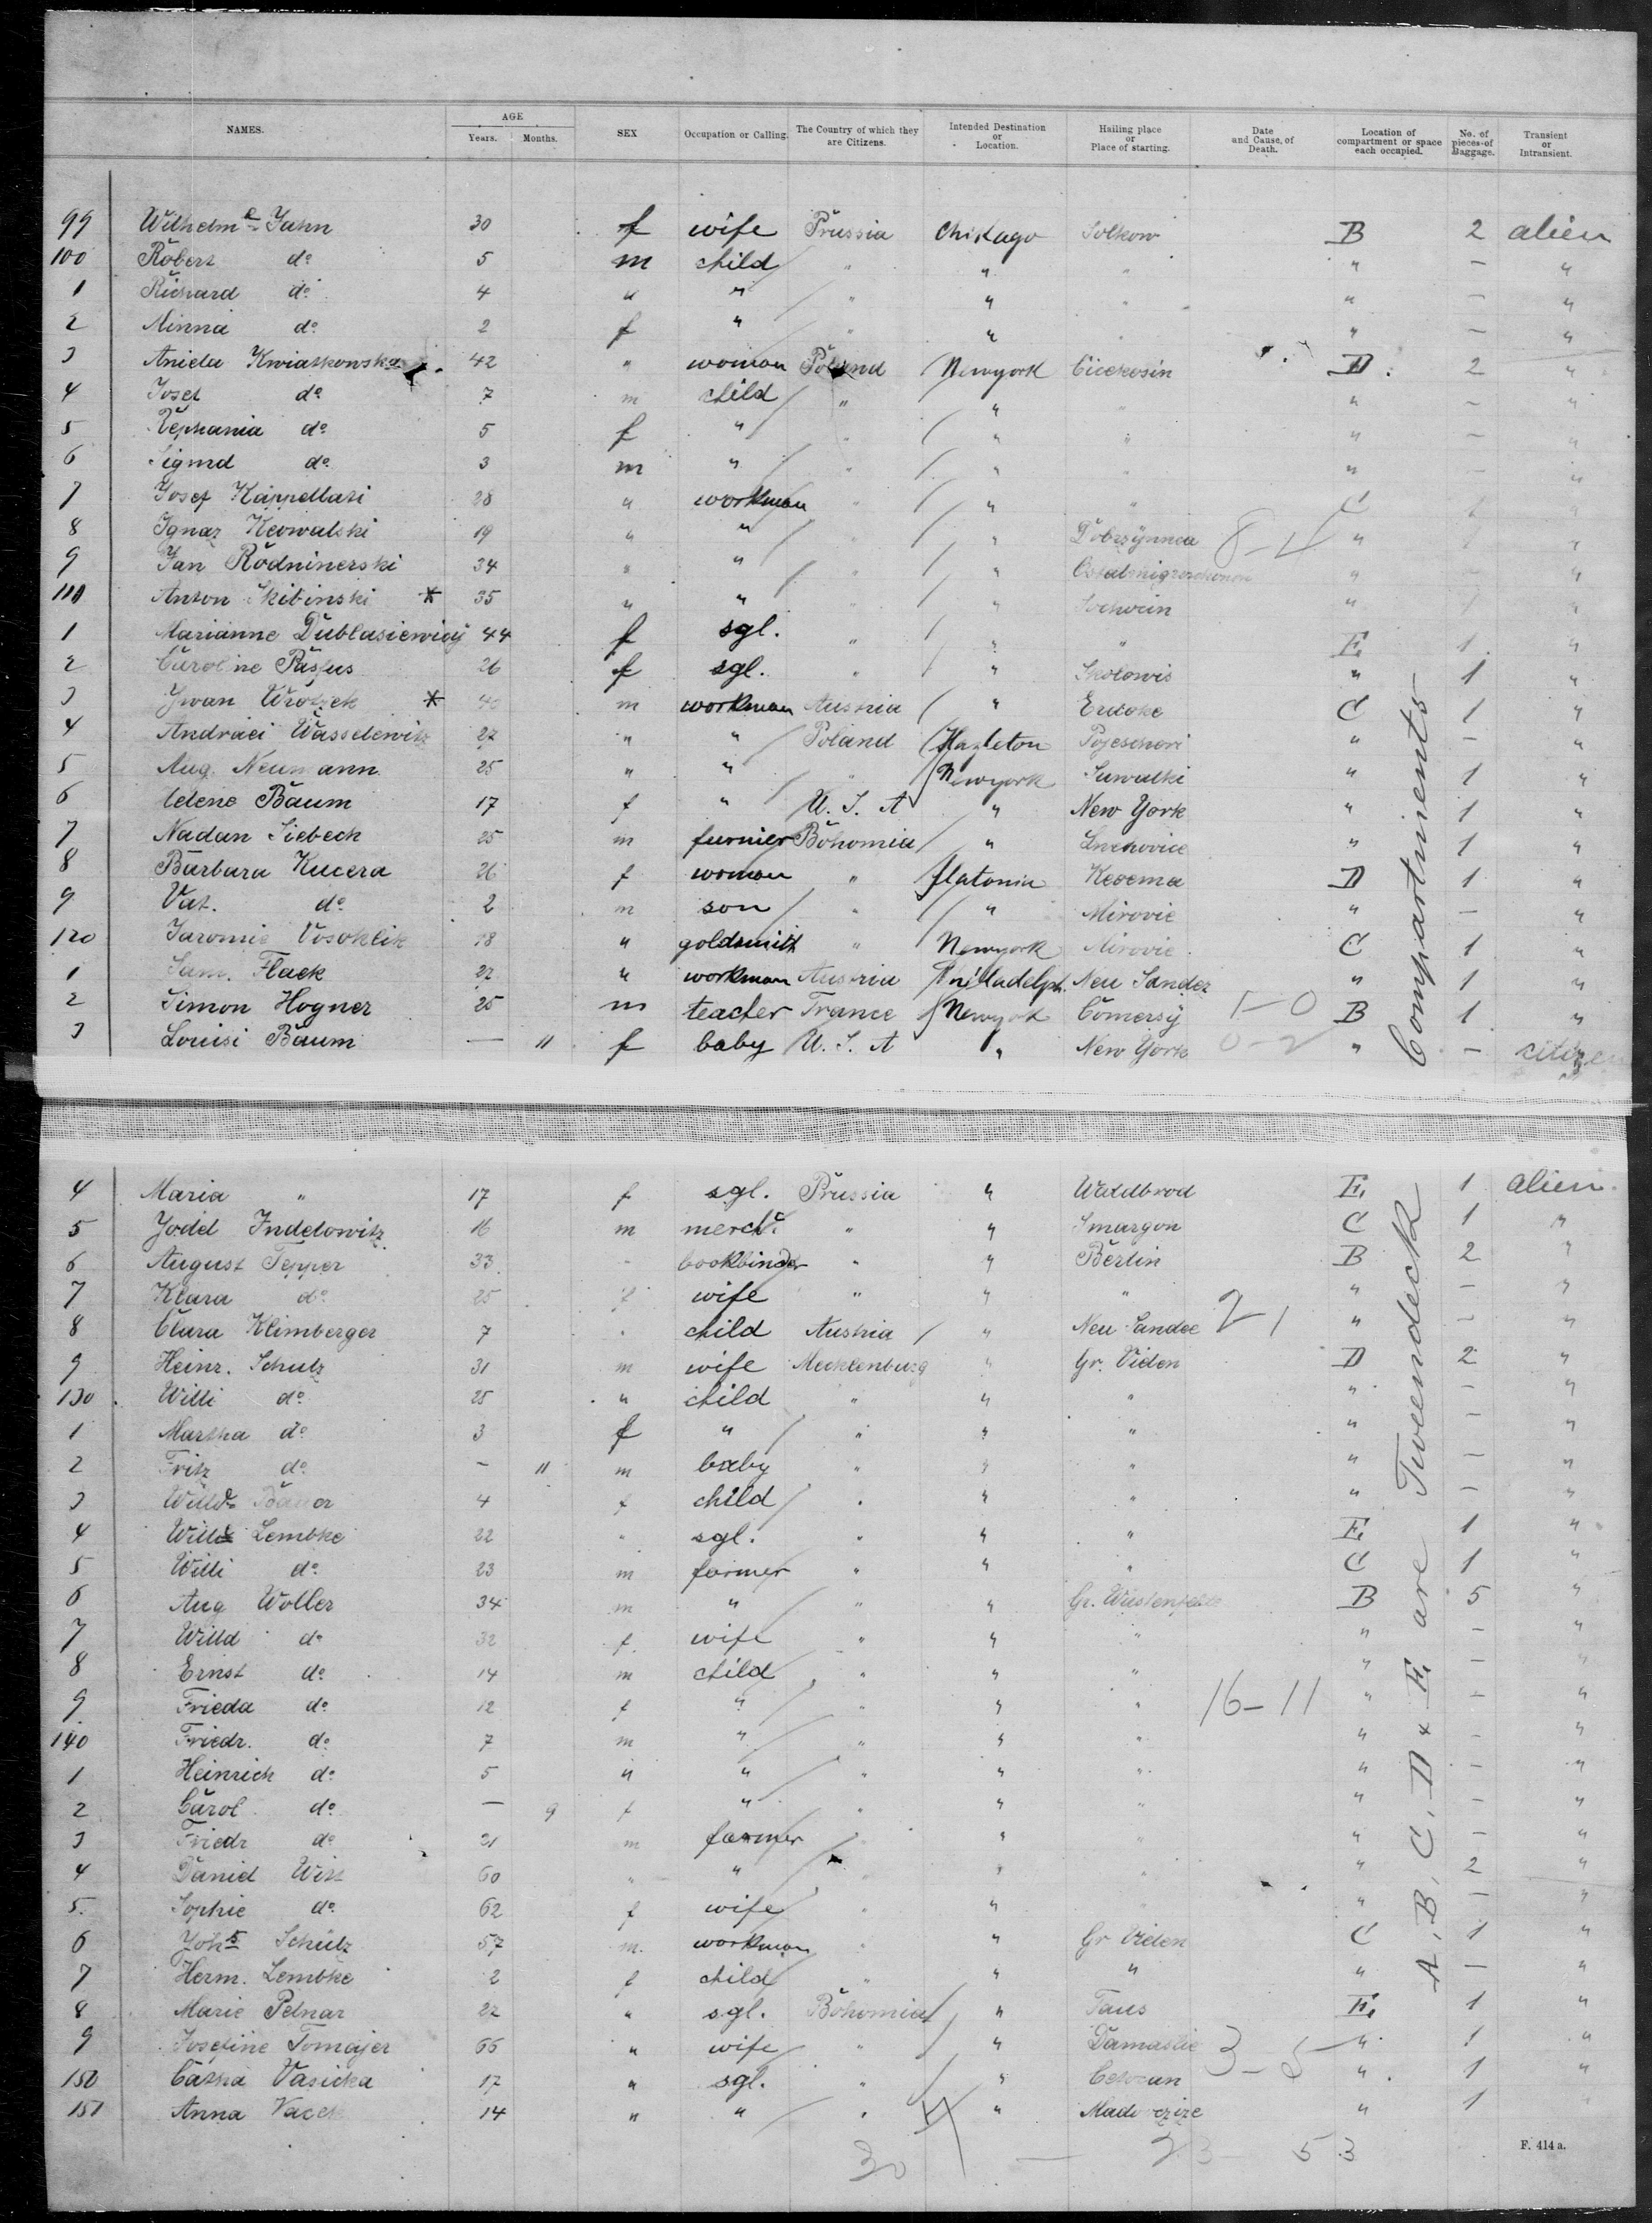 NAMES. AGE Years. Months. SEX Occupation or Calling. The Country of which they are Citizens. Intended Destination or Location. Hailing place or Place of starting. Date and Cause of Death. Location of compartment or space each occupied. No. of pieces of Baggage. Transient or Intransient.
99 Wilhelme Jahn 30 f wife Prussia Chikago Solkow B 2 alien
100 Robert do 5 m child " " " " — "
1 Richard do 4 " " " " " " — "
2 Minna do 2 f " " " " " — "
3 Aniela Kwiatkowska 42 " woman Poland Newyork D 2 "
4 Josef do 7 m child " " " " — "
5 do 5 f " " " " " — "
6 Sigmd do 3 m " " " " " — "
7 Josef Kappellari 28 " workman " " " C "
8 Ignaz Kowalski 19 " " " " 8-4 " "
9 Jan 34 " " " " " "
110 Anton Skibinski * 35 " " " " " "
1 Marianne 44 f sgl. " " " E. 1 "
2 Caroline 26 f sgl. " " Skolowis " 1 "
3 Jwan * 40 m workman Austria " C 1 "
4 27 " " Poland Hazleton " — "
5 Aug. Neumann 25 " " " Newyork Suwalki " 1 "
6 Baum 17 f " U. S. A " New York " 1 "
7 Nadan Siebeck 25 m Bohomia " " 1 "
8 Barbara Kucera 26 f woman " flatonia D 1 "
9 Vat. do 2 m son " " Mirovic " — "
120 18 " goldsmith " Newyork Mirovic C 1 "
1 Sam. Flack 27 " workman Austria Philladelph. Neu Sandez " 1 "
2 Simon Hogner 25 m teacher France Newyork Comersy 1-0 B 1 "
3 Louisi Baum — 11 f baby U. S. A " New York 0-2 " — citizen
4 Maria " 17 f sgl. Prussia " Waldbrod E. 1 alien
5 Jodel Indelowitz 16 m mercht. " " Smargon C 1 "
6 August Tepper 33 bookbinder " " Berlin B 2 "
7 Klara do 25 f wife " " " " — "
8 Clara Klimberger 7 child Austria " Neu Sandec 2-1 " — "
9 Heinr. Schulz 31 m wife Mecklenburg " Gr. Viden D 2 "
130 Willi do 25 " child " " " " — "
1 Martha do 3 f " " " " " — "
2 Fritz do — 11 m baby " " " " — "
3 Bauer 4 f child " " " " — "
4 Lembke 22 " sgl. " " " E. 1 "
5 Willi do 23 m farmer " " " C 1 "
6 Aug Woller 34 m " " " Gr. Wüstenfelde B 5 "
7 Willd do 32 f wife " " " " — "
8 Ernst do 14 m child " " " " — "
9 Frieda do 12 f " " " " 16-11 " — "
140 Friedr. do 7 m " " " " " — "
1 Heinrich do 5 " " " " " " — "
2 Carol do — 9 f " " " " " — "
3 Friedr do 21 m farmer " " " " — "
4 Daniel Witt 60 " " " " " " 2 "
5. Sophie do 62 f wife " " " " — "
6 Johs Schulz 57 m. workman " " Gr Viden C 1 "
7 Herm. Lembke 2 f child " " " " — "
8 Marie Pelnar 22 " sgl. Bohomia " Taus E. 1 "
9 Josefine Tomajer 66 " wife " " " 1 "
150 Catha Vasicka 17 " sgl. " " " 1 "
151 Anna Vacek 14 " " " " " 1 "
30 — 23 53
Compartments A, B, C, D & E. are Tweendeck
F. 414 a.